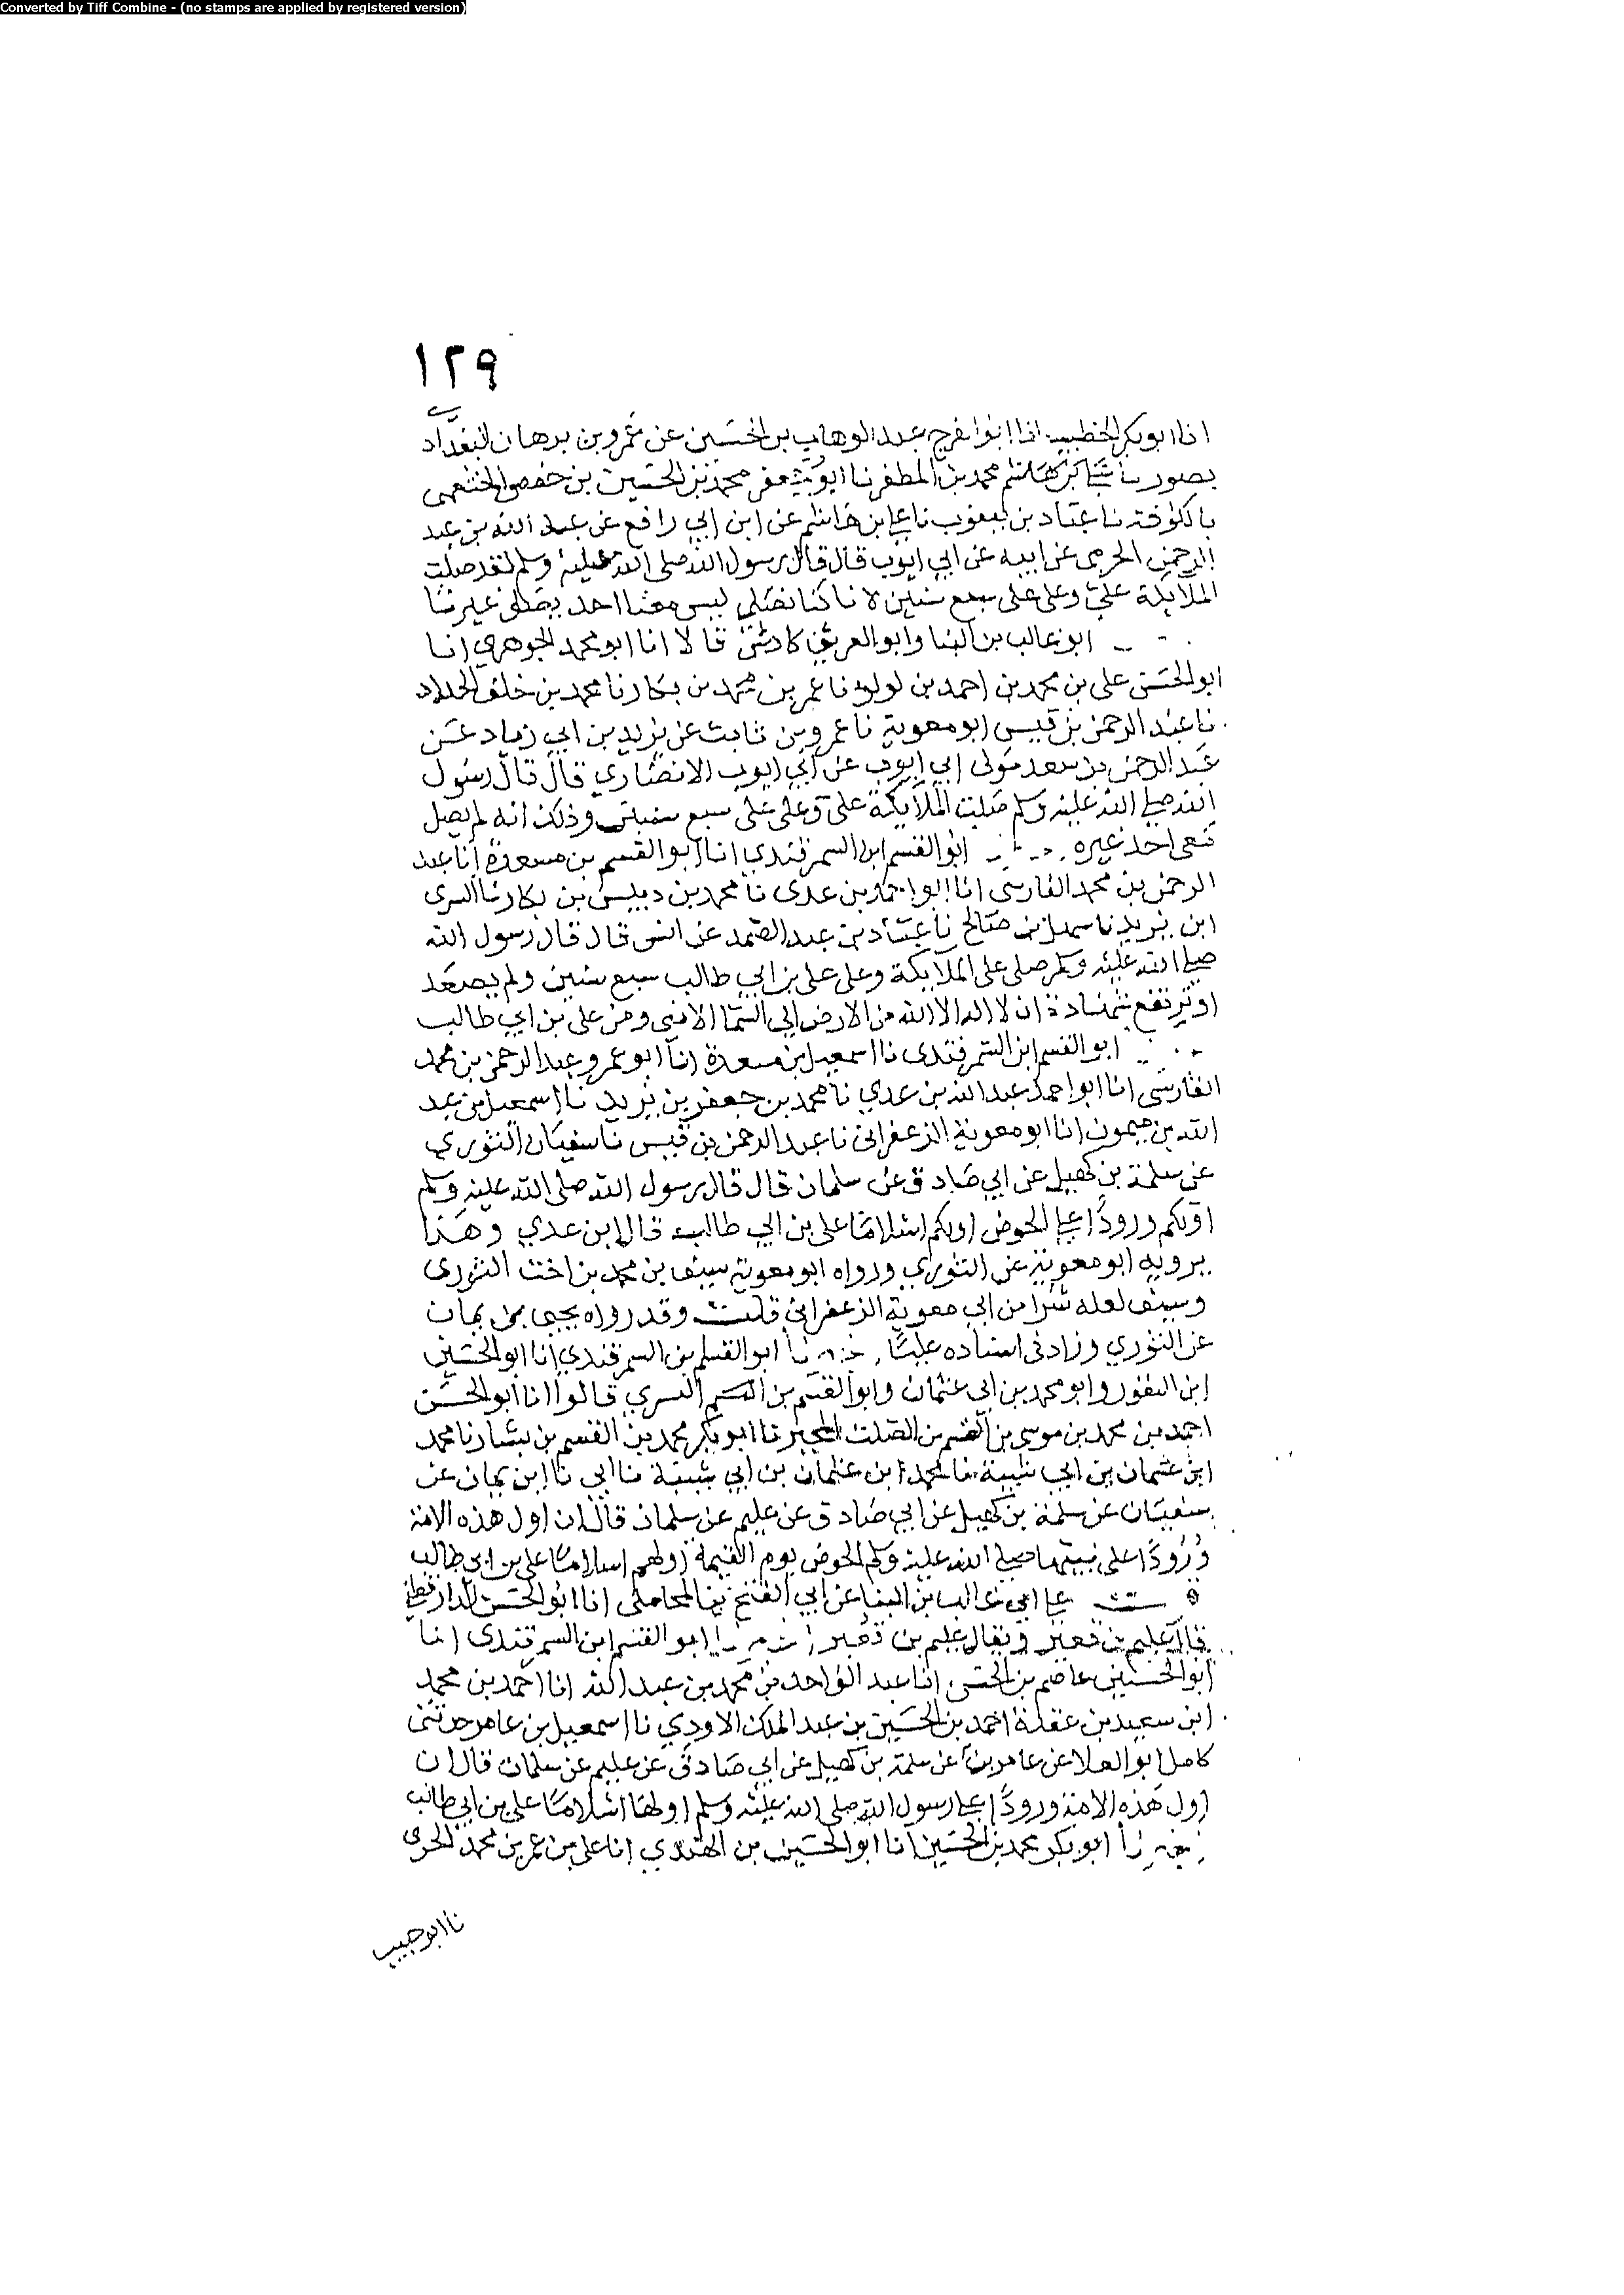 Converted by Tiff Combine - (no stamps are applied by registered version)
١٢٩
انا ابو بكر الخطيب انا ابو الفرج عبد الوهاب بن الحسين عن عمرو بن برهان البغدادي
بصور نا محمد بن المظفر نا ابو جعفر محمد بن الحسين بن حفص الخثعمي
بالكوفة نا عباد بن يعقوب نا علي بن هاشم عن ابن ابي رافع عن عبد الله بن عبد
الرحمن الحرمي عن ابيه عن ابي ايوب قال قال رسول الله صلى الله عليه وسلم لقد صلت
الملائكة علي وعلى على سبع سنين لانا كنا نصلي ليس معنا احد يصلي غيرنا
ابو غالب بن البنا وابو العز بن كادش قالا انا ابو محمد الجوهري انا
ابو الحسن على بن محمد بن احمد بن لولو نا عمر بن محمد بن بكار نا محمد بن خلف الحداد
نا عبد الرحمن بن قيس ابو معوية نا عمرو بن ثابت عن يزيد بن ابي زياد عن
عبد الرحمن بن سعد مولى ابي ايوب عن ابي ايوب الانصاري قال قال رسول
الله صلى الله عليه وسلم صلت الملائكة على وعلى على سبع سنين وذلك انه لم يصل
معى احد غيره ابو القسم ابن السمرقندي انا ابو القسم بن مسعدة انا عبد
الرحمن بن محمد الفارسى انا ابو احمد بن عدى نا محمد بن دبيس بن بكار نا السرى
ابن يزيد نا سهل بن صالح نا عباد بن عبد الصمد عن انس قال قال رسول الله
صلى الله عليه وسلم صلى على الملائكة وعلى على بن ابي طالب سبع سنين ولم يصعد
او ترتفع شهادة ان لا اله الا الله من الارض الي السما الا منى ومن على بن ابي طالب
ابو القسم ابن السمرقندى نا اسمعيل بن مسعدة انا ابو عمرو عبد الرحمن بن محمد
الفارسى انا ابو احمد عبد الله بن عدي نا محمد بن جعفر بن يزيد نا اسمعيل بن عبد
الله بن ميمون انا ابو معوية الزعفرانى نا عبد الرحمن بن قيس نا سفيان الثوري
عن سلمة بن كهيل عن ابي صادق عن سلمان قال قال رسول الله صلى الله عليه وسلم
اولكم ورودا علي الحوض اولكم اسلاما على بن ابي طالب قال ابن عدي وهذا
يرويه ابو معوية عن الثوري ورواه ابو معوية سيف بن محمد بن اخت الثورى
وسيف لعله شرا من ابي معوية الزعفرانى قلت وقد رواه يحيى بن يمان
عن الثوري وزاد فى اسناده عليما ابو القسم بن السمرقندي انا ابو الحسين
ابن النقور وابو محمد بن ابى عثمان وابو القسم بن البسري قالوا انا ابو الحسن
احمد بن محمد بن موسى بن القسم بن الصلت المجبر نا ابو بكر محمد بن القسم بن بشار نا محمد
ابن عثمان بن ابي شيبة نا محمد ابن عثمان بن ابي شيبة نا ابي نا ابن يمان عن
سفيان عن سلمة بن كهيل عن ابي صادق عن عليم عن سلمان قال ان اول هذه الامة
ورودا على نبيها صلى الله عليه وسلم الحوض يوم القيمة اولهم اسلاما على بن ابي طالب
على ابي غالب بن البنا عن ابي الفتح بن المحاملى انا ابو الحسن الدارقطني
قال عليم بن قعين ويقال عليم بن قعير ابو القسم ابن السمرقندى انا
ابو الحسين عاصم بن الحسن انا عبد الواحد بن محمد بن عبد الله انا احمد بن محمد
ابن سعيد بن عقدة احمد بن الحسين بن عبد الملك الاودي نا اسمعيل بن عامر حدثنى
كامل ابو العلا عن عامر بن عن سلمة بن كهيل عن ابي صادق عن عليم عن سلمان قال ان
اول هذه الامة ورودا على رسول الله صلى الله عليه وسلم اولها اسلاما على بن ابي طالب
ابو بكر محمد بن الحسين انا ابو الحسين بن المهتدي انا على بن عمر بن محمد الحربى
نا ابو حبيب